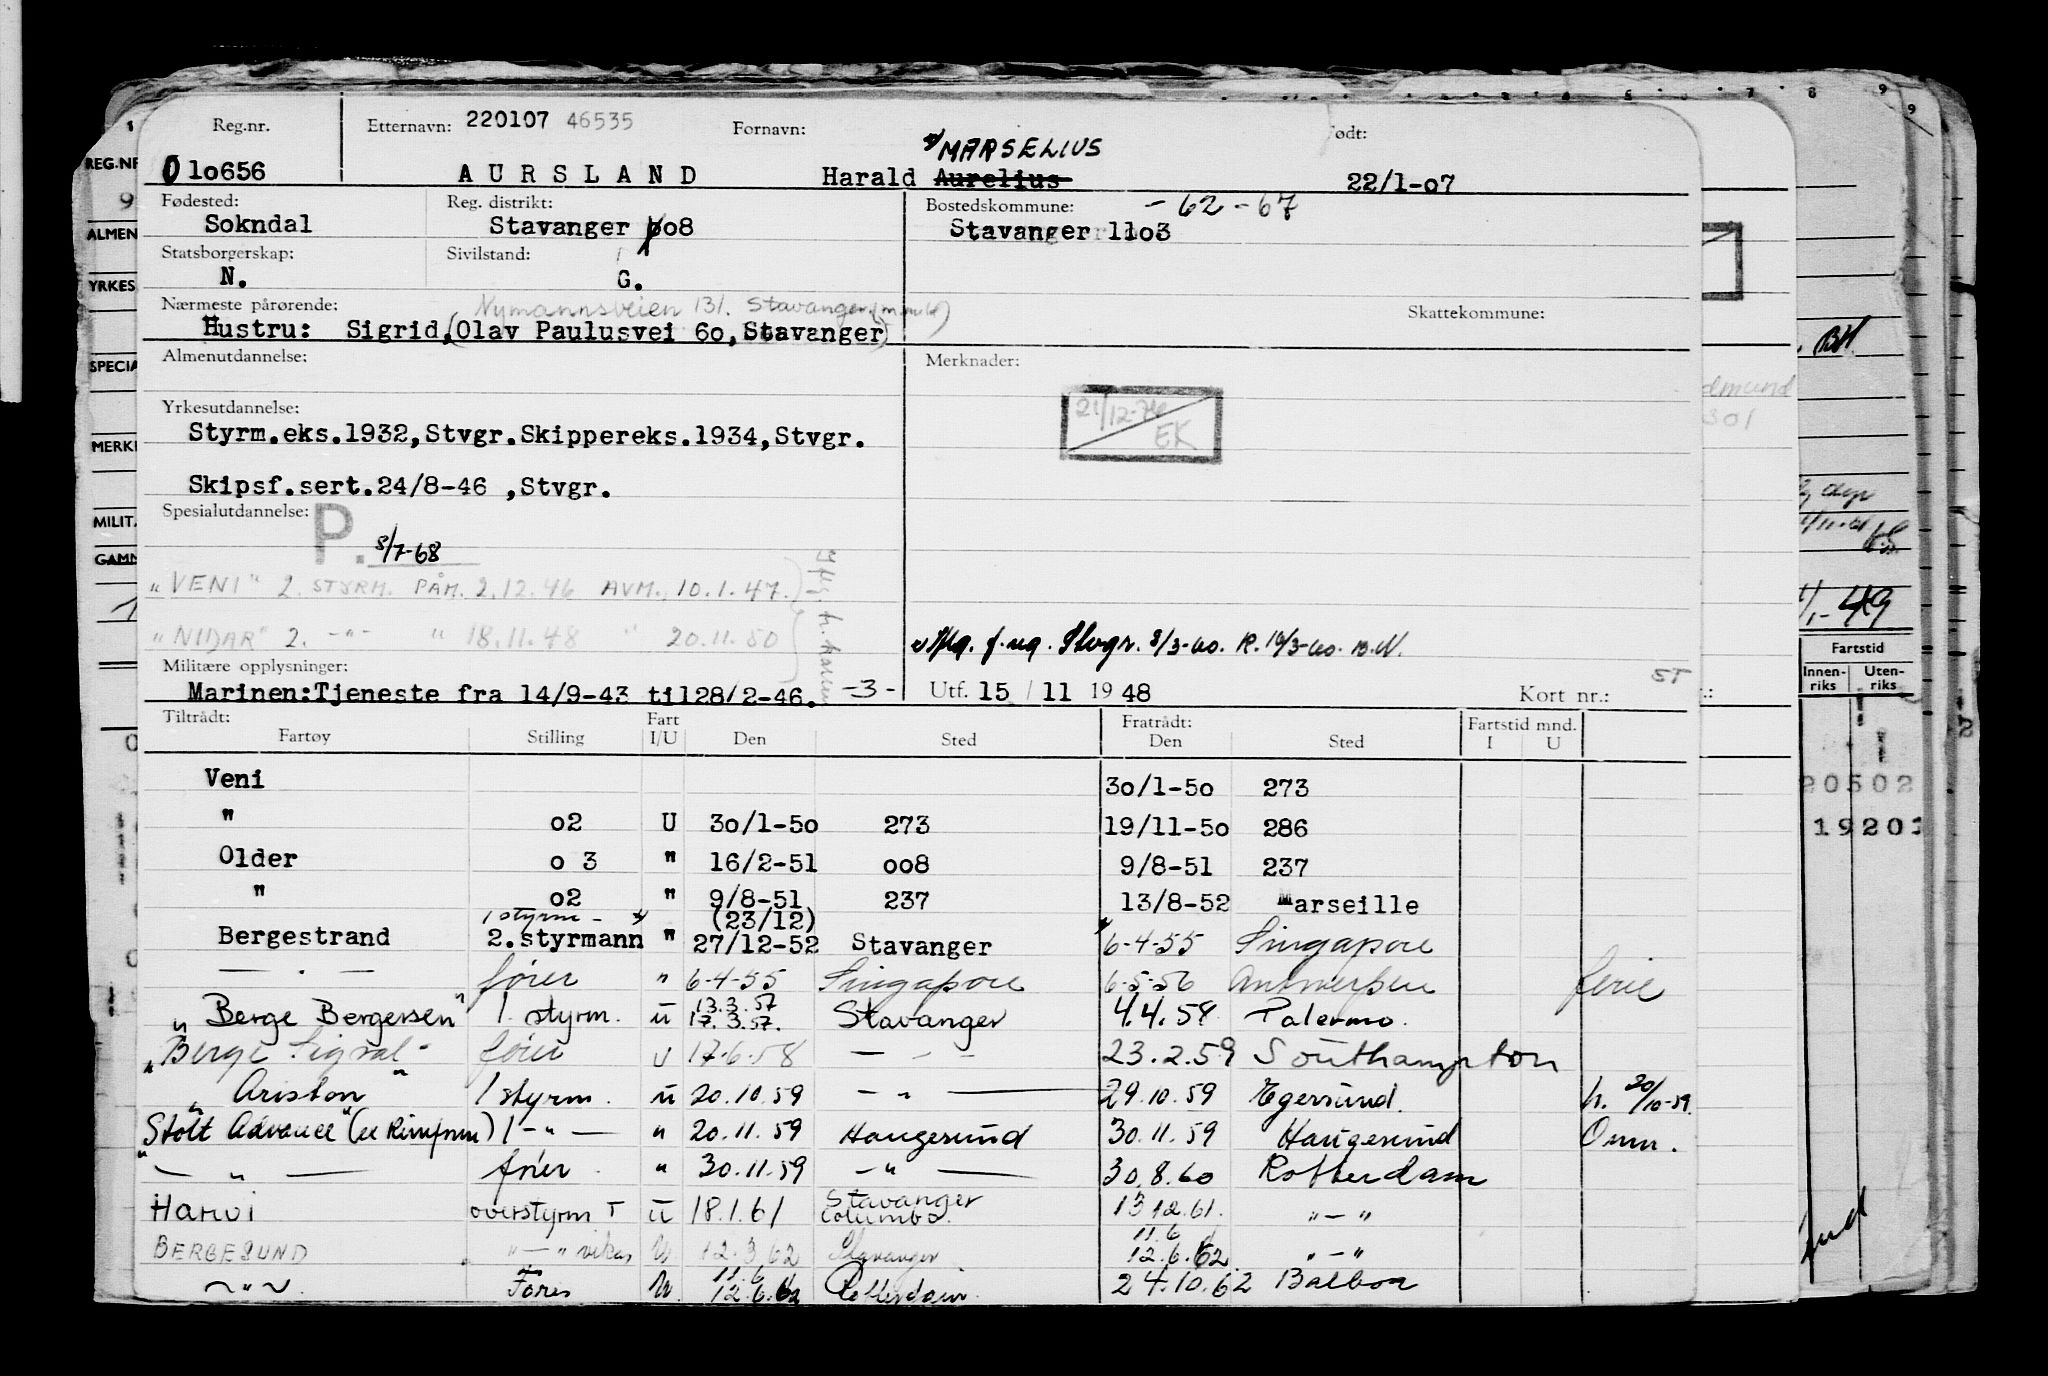 Reg.nr. Etternavn: 220107 46535 Fornavn: Født:
MARSELIUS
010656 AURSLAND Harald Aurelius 22/1-07
Fødested: Reg. distrikt: Bostedskommune: - 62 - 67
Sokndal Stavanger 008 Stavanger 1103
Statsborgerskap: Sivilstand:
N. G.
Nærmeste pårørende: Nymannsveien 131. Stavanger Skattekommune:
Hustru: Sigrid, (Olav Paulusvei 60, Stavanger)
Almenutdannelse: Merknader:
21/12-74
EK
Yrkesutdannelse:
Styrm.eks.1932, Stvgr. Skippereks.1934, Stvgr.
Skipsf.sert.24/8-46 , Stvgr.
Spesialutdannelse:
P. 5/7-68
"VENI" 2. STYRM. PÅM. 2.12.46 AVM. 10.1.47.
"NIDAR" 2. -"- " 18.11.48 " 20.11.50
Stvgr. 8/3-60. R. 10/3-60.
Militære opplysninger:
Marinen: Tjeneste fra 14/9-43 til 28/2-46. -3- Utf. 15 / 11 19 48 Kort nr.: ST
Tiltrådt: Fart Fratrådt: Fartstid mnd.
Fartøy Stilling I/U Den Sted Den Sted I U
Veni 30/1-50 273
" 02 U 30/1-50 273 19/11-50 286
Older 0 3 " 16/2-51 008 9/8-51 237
" 02 " 9/8-51 237 13/8-52 Marseille
1 styrm - (23/12)
Bergestrand 2.styrmann " 27/12-52 Stavanger 6-4-55 Singapore
— . — fører " 6-4-55 Singapore 6-5-56 Antwerpen ferie
13.3.57
"Berge Bergersen" 1. styrm. u 17.3.57. Stavanger 4.4.58 Palermo.
"Berge Signal" fører u 17-6-58 — - - 23.2.59 Southampton
"Ariston" 1 styrm. u 20.10.59 - " — 29.10.59 Egersund. h. 20/10-59.
"Stolt Advance" (ex ) 1 - " — " 20.11.59 Haugesund 30.11.59 Haugesund Omm.
— " — fører " 30.11.59 - " — 30.8.60 Rotterdam
Harvi overstyrm T u 18.1.61 Stavanger Columbo. 13.12.61. " — "
11.6
BERGESUND " — " vikar U 12.3.62 Stavanger 12.6.62. " — "
11.6
~ " ~ Fører U. 12.6.62 Rotterdam. 24.10.62 Balboa
REG.NR
9
ALMEN
YRKES
SPECIA
MERK
MILIT.
GAMN
Fartstid
Innen-riks Uten-riks
20502
1920
BH.
1/1-49